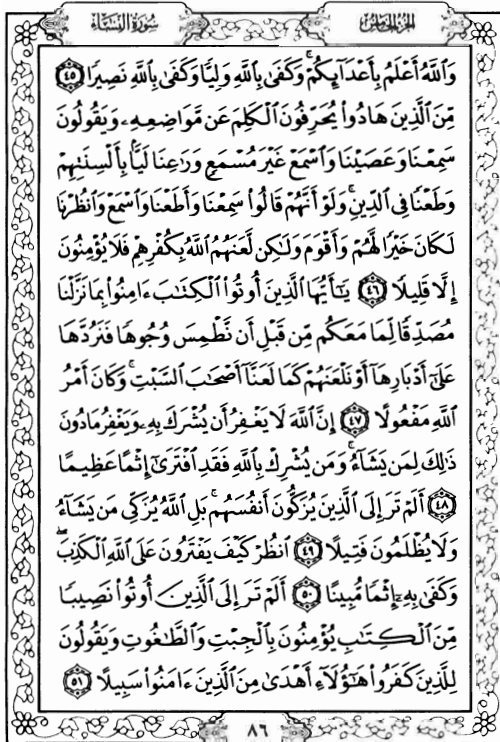 الجزء الخامس
سورة النساء
وَاللَّهُ أَعْلَمُ بِأَعْدَائِكُمْ ۚ وَكَفَىٰ بِاللَّهِ وَلِيًّا وَكَفَىٰ بِاللَّهِ نَصِيرًا ﴿٤٥﴾
مِّنَ الَّذِينَ هَادُوا۟ يُحَرِّفُونَ الْكَلِمَ عَن مَّوَاضِعِهِۦ وَيَقُولُونَ
سَمِعْنَا وَعَصَيْنَا وَاسْمَعْ غَيْرَ مُسْمَعٍ وَرَٰعِنَا لَيًّۢا بِأَلْسِنَتِهِمْ
وَطَعْنًا فِي الدِّينِ ۚ وَلَوْ أَنَّهُمْ قَالُوا۟ سَمِعْنَا وَأَطَعْنَا وَاسْمَعْ وَانظُرْنَا
لَكَانَ خَيْرًا لَّهُمْ وَأَقْوَمَ وَلَٰكِن لَّعَنَهُمُ اللَّهُ بِكُفْرِهِمْ فَلَا يُؤْمِنُونَ
إِلَّا قَلِيلًا ﴿٤٦﴾ يَٰٓأَيُّهَا الَّذِينَ أُوتُوا۟ الْكِتَٰبَ ءَامِنُوا۟ بِمَا نَزَّلْنَا
مُصَدِّقًا لِّمَا مَعَكُم مِّن قَبْلِ أَن نَّطْمِسَ وُجُوهًا فَنَرُدَّهَا
عَلَىٰٓ أَدْبَارِهَآ أَوْ نَلْعَنَهُمْ كَمَا لَعَنَّآ أَصْحَٰبَ السَّبْتِ ۚ وَكَانَ أَمْرُ
اللَّهِ مَفْعُولًا ﴿٤٧﴾ إِنَّ اللَّهَ لَا يَغْفِرُ أَن يُشْرَكَ بِهِۦ وَيَغْفِرُ مَا دُونَ
ذَٰلِكَ لِمَن يَشَآءُ ۚ وَمَن يُشْرِكْ بِاللَّهِ فَقَدِ افْتَرَىٰٓ إِثْمًا عَظِيمًا
﴿٤٨﴾ أَلَمْ تَرَ إِلَى الَّذِينَ يُزَكُّونَ أَنفُسَهُم ۚ بَلِ اللَّهُ يُزَكِّي مَن يَشَآءُ
وَلَا يُظْلَمُونَ فَتِيلًا ﴿٤٩﴾ انظُرْ كَيْفَ يَفْتَرُونَ عَلَى اللَّهِ الْكَذِبَ ۖ
وَكَفَىٰ بِهِۦٓ إِثْمًا مُّبِينًا ﴿٥٠﴾ أَلَمْ تَرَ إِلَى الَّذِينَ أُوتُوا۟ نَصِيبًا
مِّنَ الْكِتَٰبِ يُؤْمِنُونَ بِالْجِبْتِ وَالطَّٰغُوتِ وَيَقُولُونَ
لِلَّذِينَ كَفَرُوا۟ هَٰٓؤُلَآءِ أَهْدَىٰ مِنَ الَّذِينَ ءَامَنُوا۟ سَبِيلًا ﴿٥١﴾
٨٦